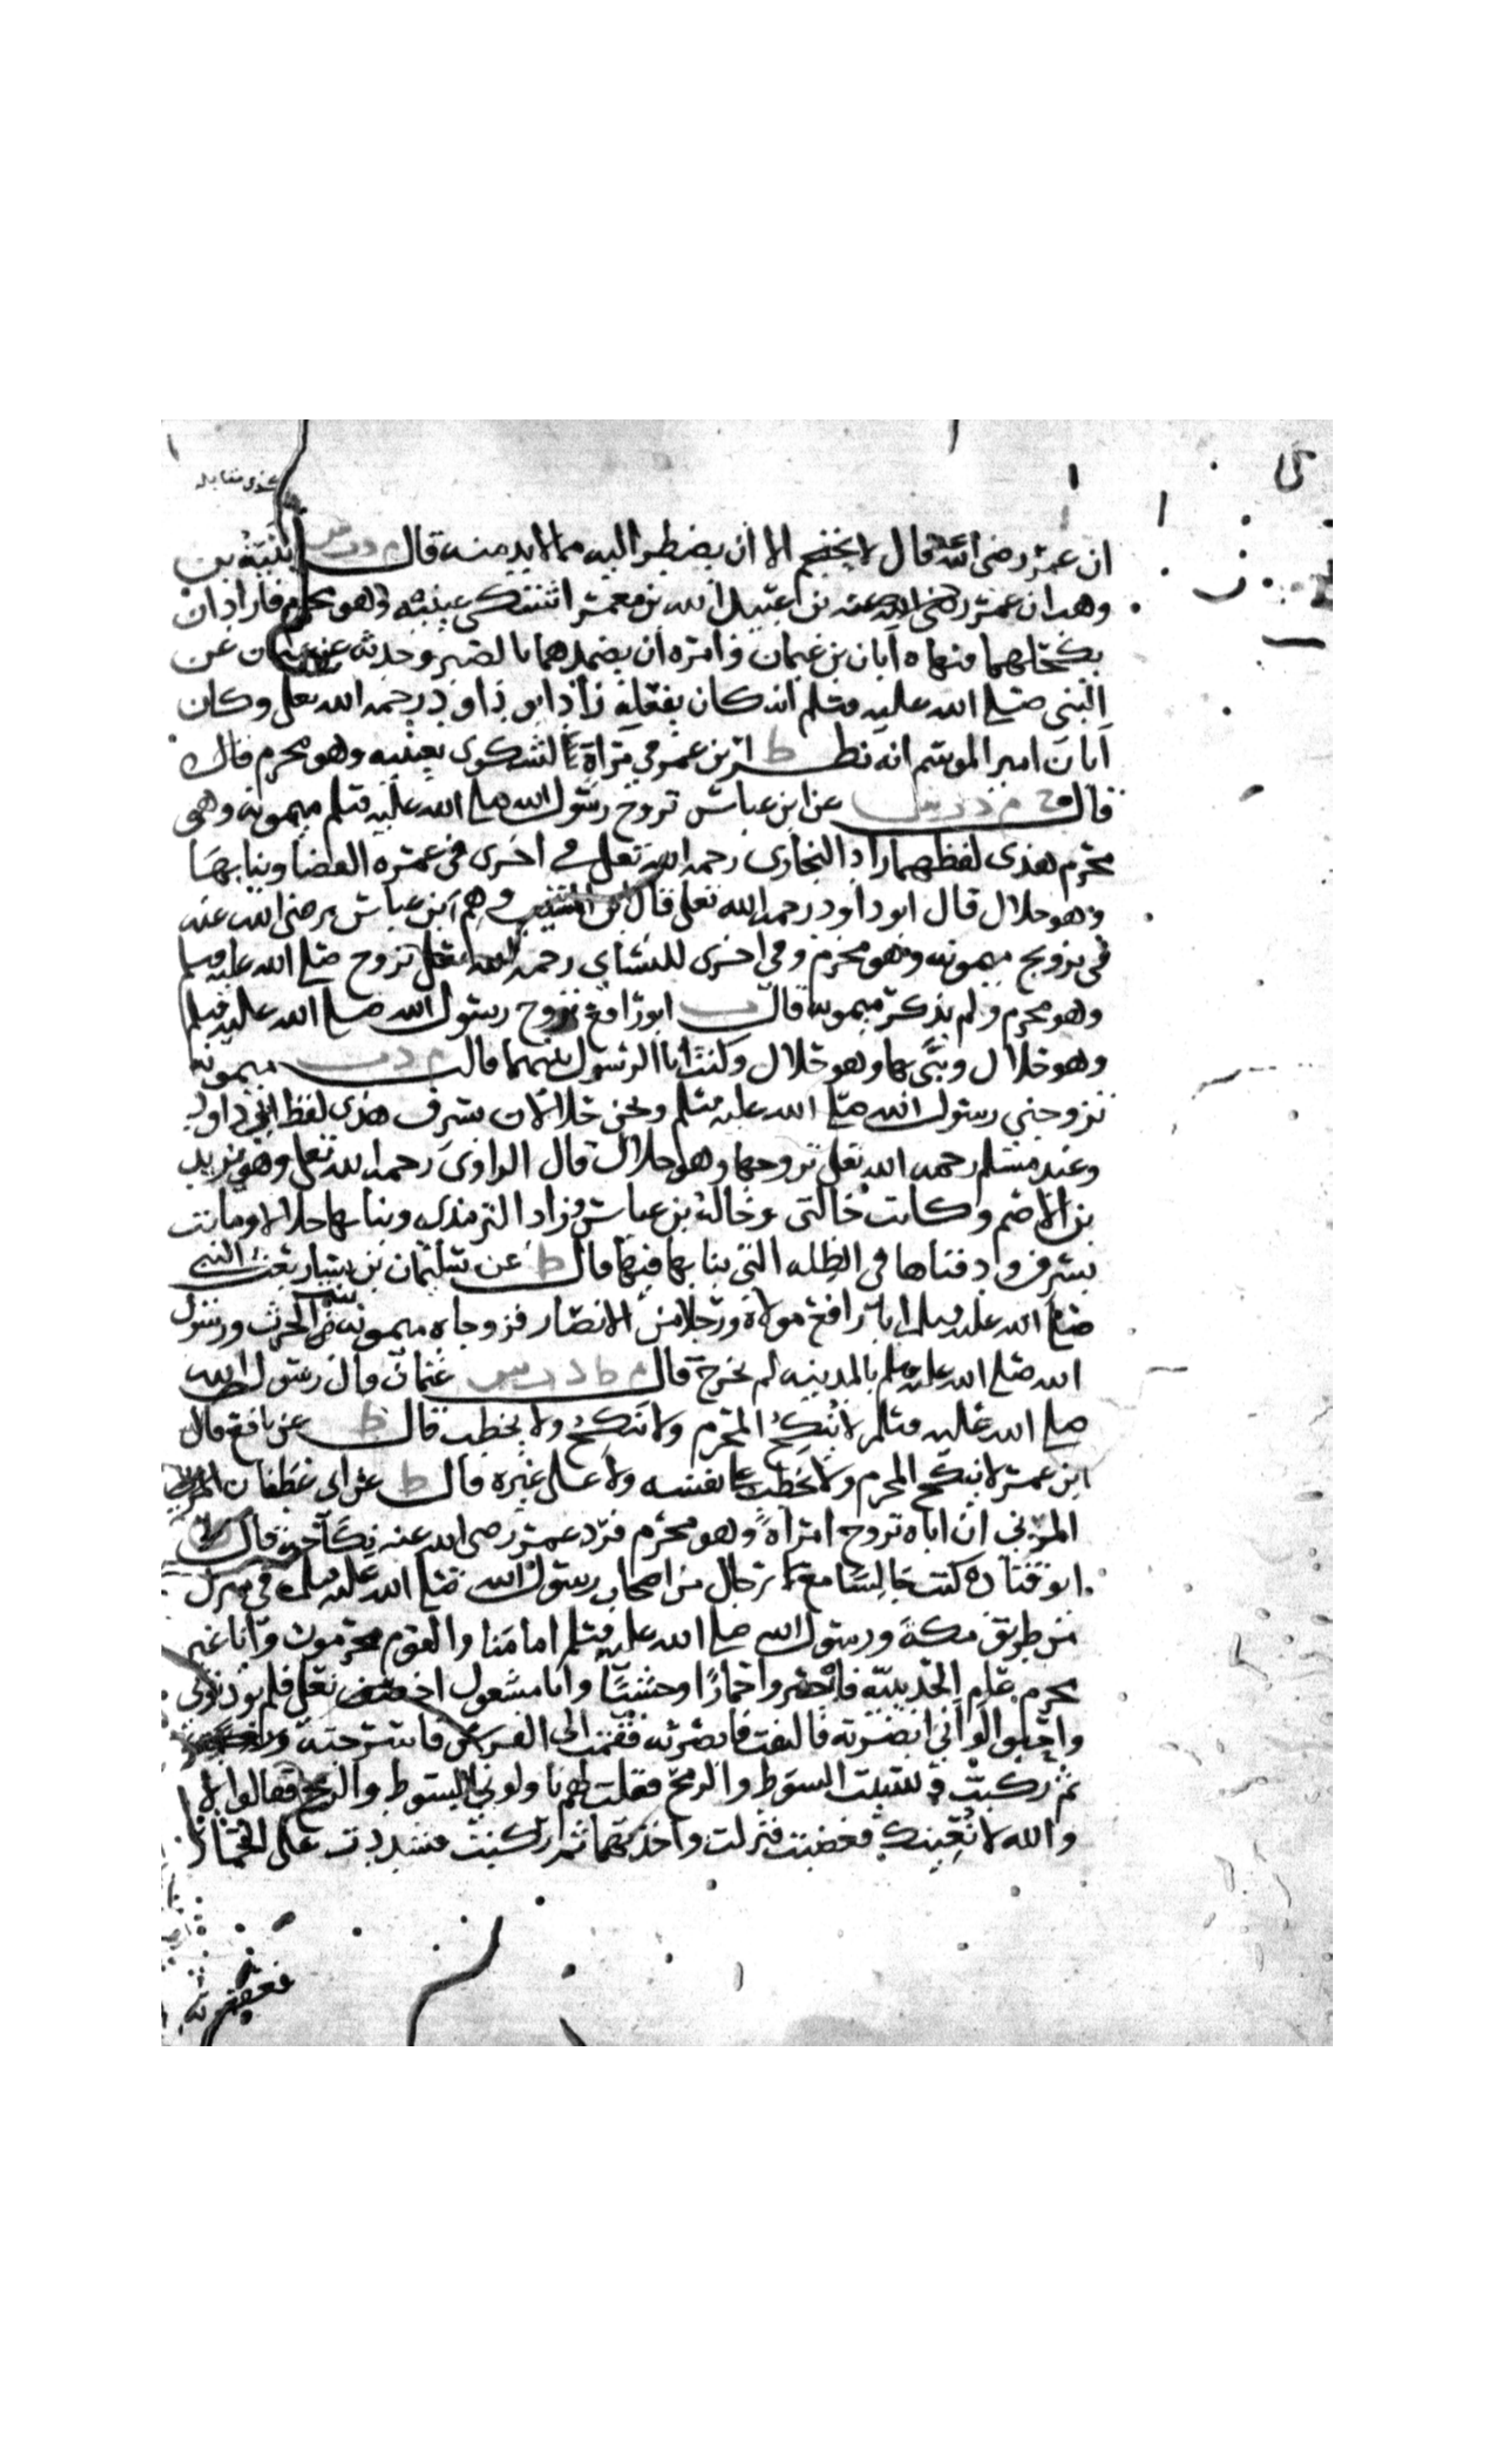 ان عمر رضي الله عنه قال لا يحتجم الا ان يضطر اليه مما لا بد منه قال م د ت س نبيه بن
وهب ان عمر بن عبيد الله بن معمر اشتكى عينيه وهو محرم فاراد ان
يكحلهما فنهاه ابان بن عثمان وامره ان يضمدهما بالصبر وحدثه عن عثمان عن
النبي صلى الله عليه وسلم انه كان يفعله زاد ابو داود رحمه الله تعلى وكان
ابان امير الموسم انه نظر ط ابن عمر في مراة لشكوى بعينيه وهو محرم قال
قال خ م د ت س عن ابن عباس تزوج رسول الله صلى الله عليه وسلم ميمونه وهو
محرم هذى لفظهما زاد البخارى رحمه الله تعلى في اخرى في عمره القضا وبنا بها
وهو حلال قال ابو داود رحمه الله تعلى قال ابن المسيب وهم ابن عباس رضى الله عنه
في تزويج ميمونه وهو محرم وفي اخرى للنساى رحمه الله تعلى تزوج صلى الله عليه وسلم
وهو محرم ولم يذكر ميمونه قال ت ابو رافع تزوج رسول الله صلى الله عليه وسلم
وهو حلال وبنى بها وهو حلال وكنت انا الرسول بينهما قالت م د ت ميمونه
تزوجني رسول الله صلى الله عليه وسلم ونحن حلالان بسرف هذى لفظ ابي داود
وعند مسلم رحمه الله تعلى تزوجها وهو حلال قال الراوى رحمه الله تعلى وهو يزيد
بن الاصم وكانت خالتى وخالة بن عباس وزاد الترمذى وبنا بها حلالا وماتت
بسرف ودفناها في الظله التي بنا بها فيها قال ط عن سليمان بن يسار بعث النبي
صلى الله عليه وسلم ابا رافع مولاه ورجلا من الانصار فزوجاه ميمونه بنت الحرث ورسول
الله صلى الله عليه وسلم بالمدينه لم يخرج قال م ط د ت س عثمان قال رسول الله
صلى الله عليه وسلم لا ينكح المحرم ولا ينكح ولا يخطب قال ط عن نافع قال
ابن عمر لا ينكح المحرم ولا يخطب على نفسه ولا على غيره قال ط عن ابى غطفان
المزني ان اباه تزوج امراة وهو محرم فرد عمر رضى الله عنه نكاحه قال
ابو قتاده كنت جالسا مع رجال من اصحاب رسول الله صلى الله عليه وسلم في منزل
من طريق مكة ورسول الله صلى الله عليه وسلم امامنا والقوم محرمون وانا غير
محرم عام الحديبية فابصروا حمارا وحشيا وانا مشغول اخصف نعلي فلم يوذنونى
واحبوا لو اني ابصرته فالتفت فابصرته فقمت الى الفرس فاسرجته
ثم ركبت ونسيت السوط والرمح فقلت لهم ناولوني السوط والرمح فقالوا لا
والله لا نعينك فغضبت فنزلت واخذتهما ثم ركبت فشددت على الحمار
فعقرته